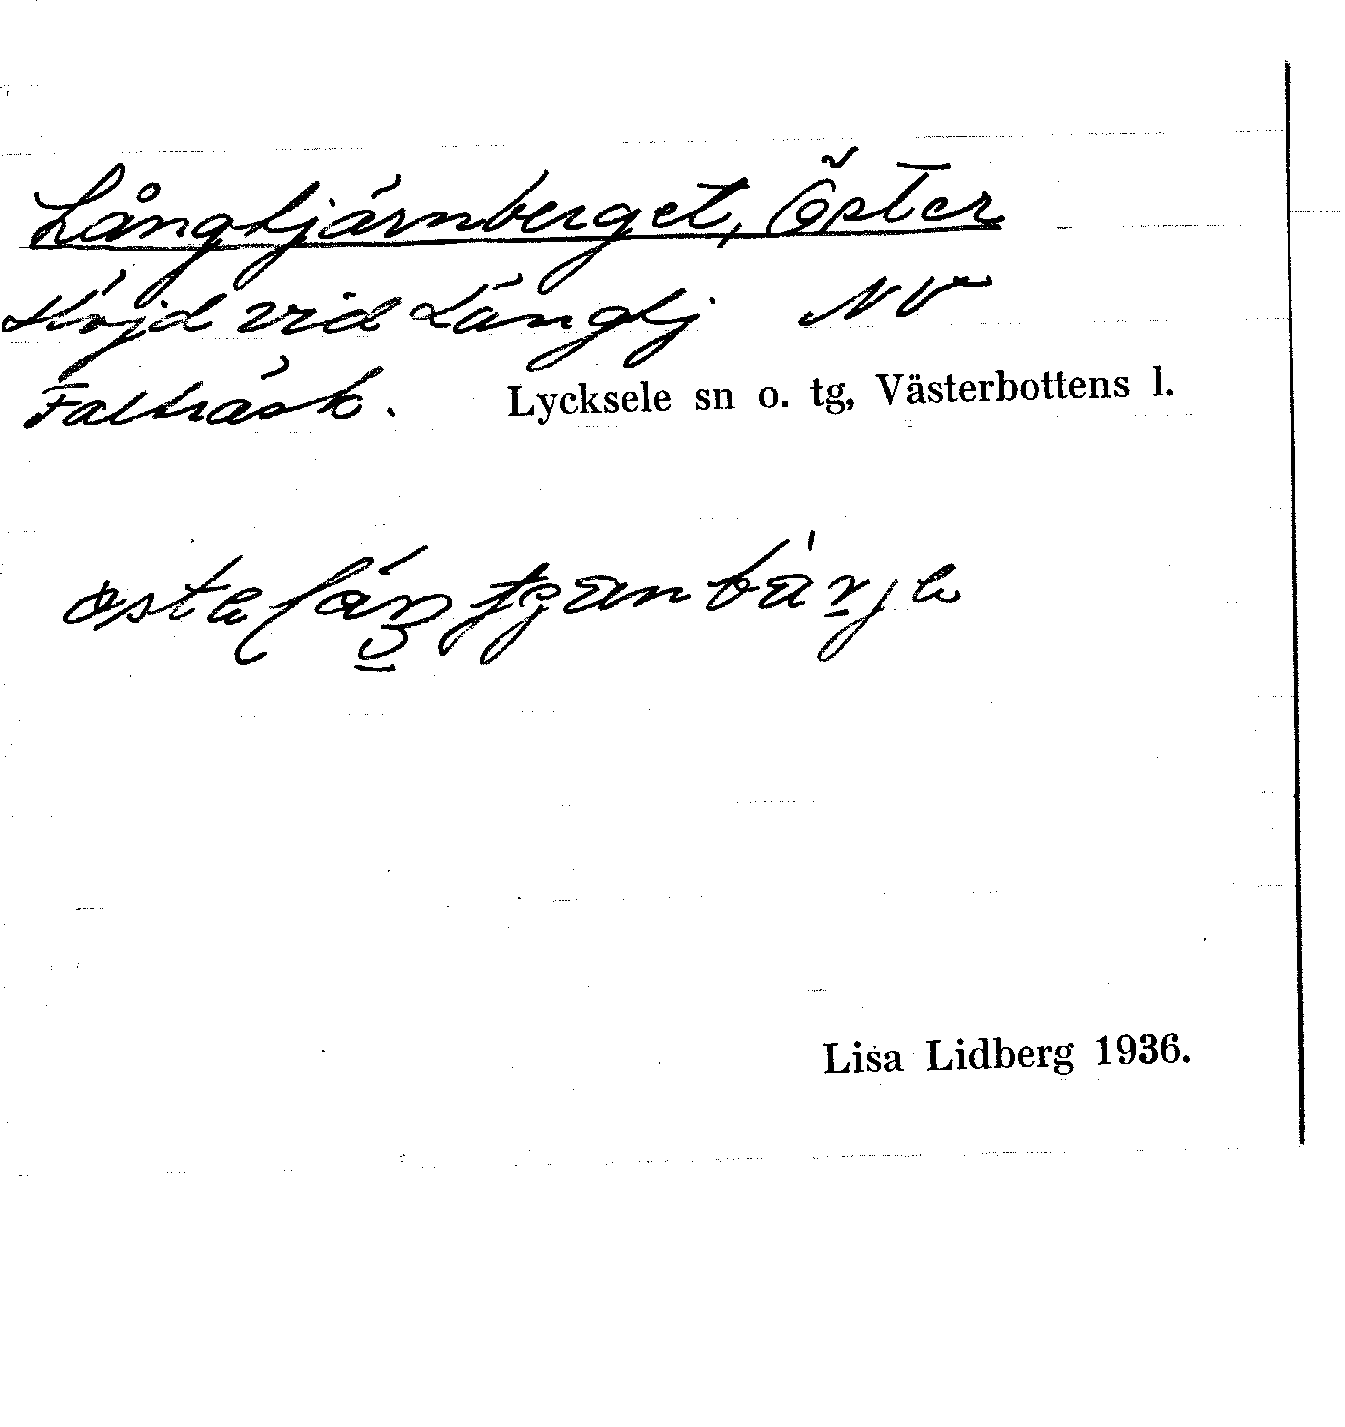 Långtjärnberget, Öster
Höjd vid Långtj NV
Falträsk. Lycksele sn o. tg, Västerbottens l.
Lisa Lidberg 1936.